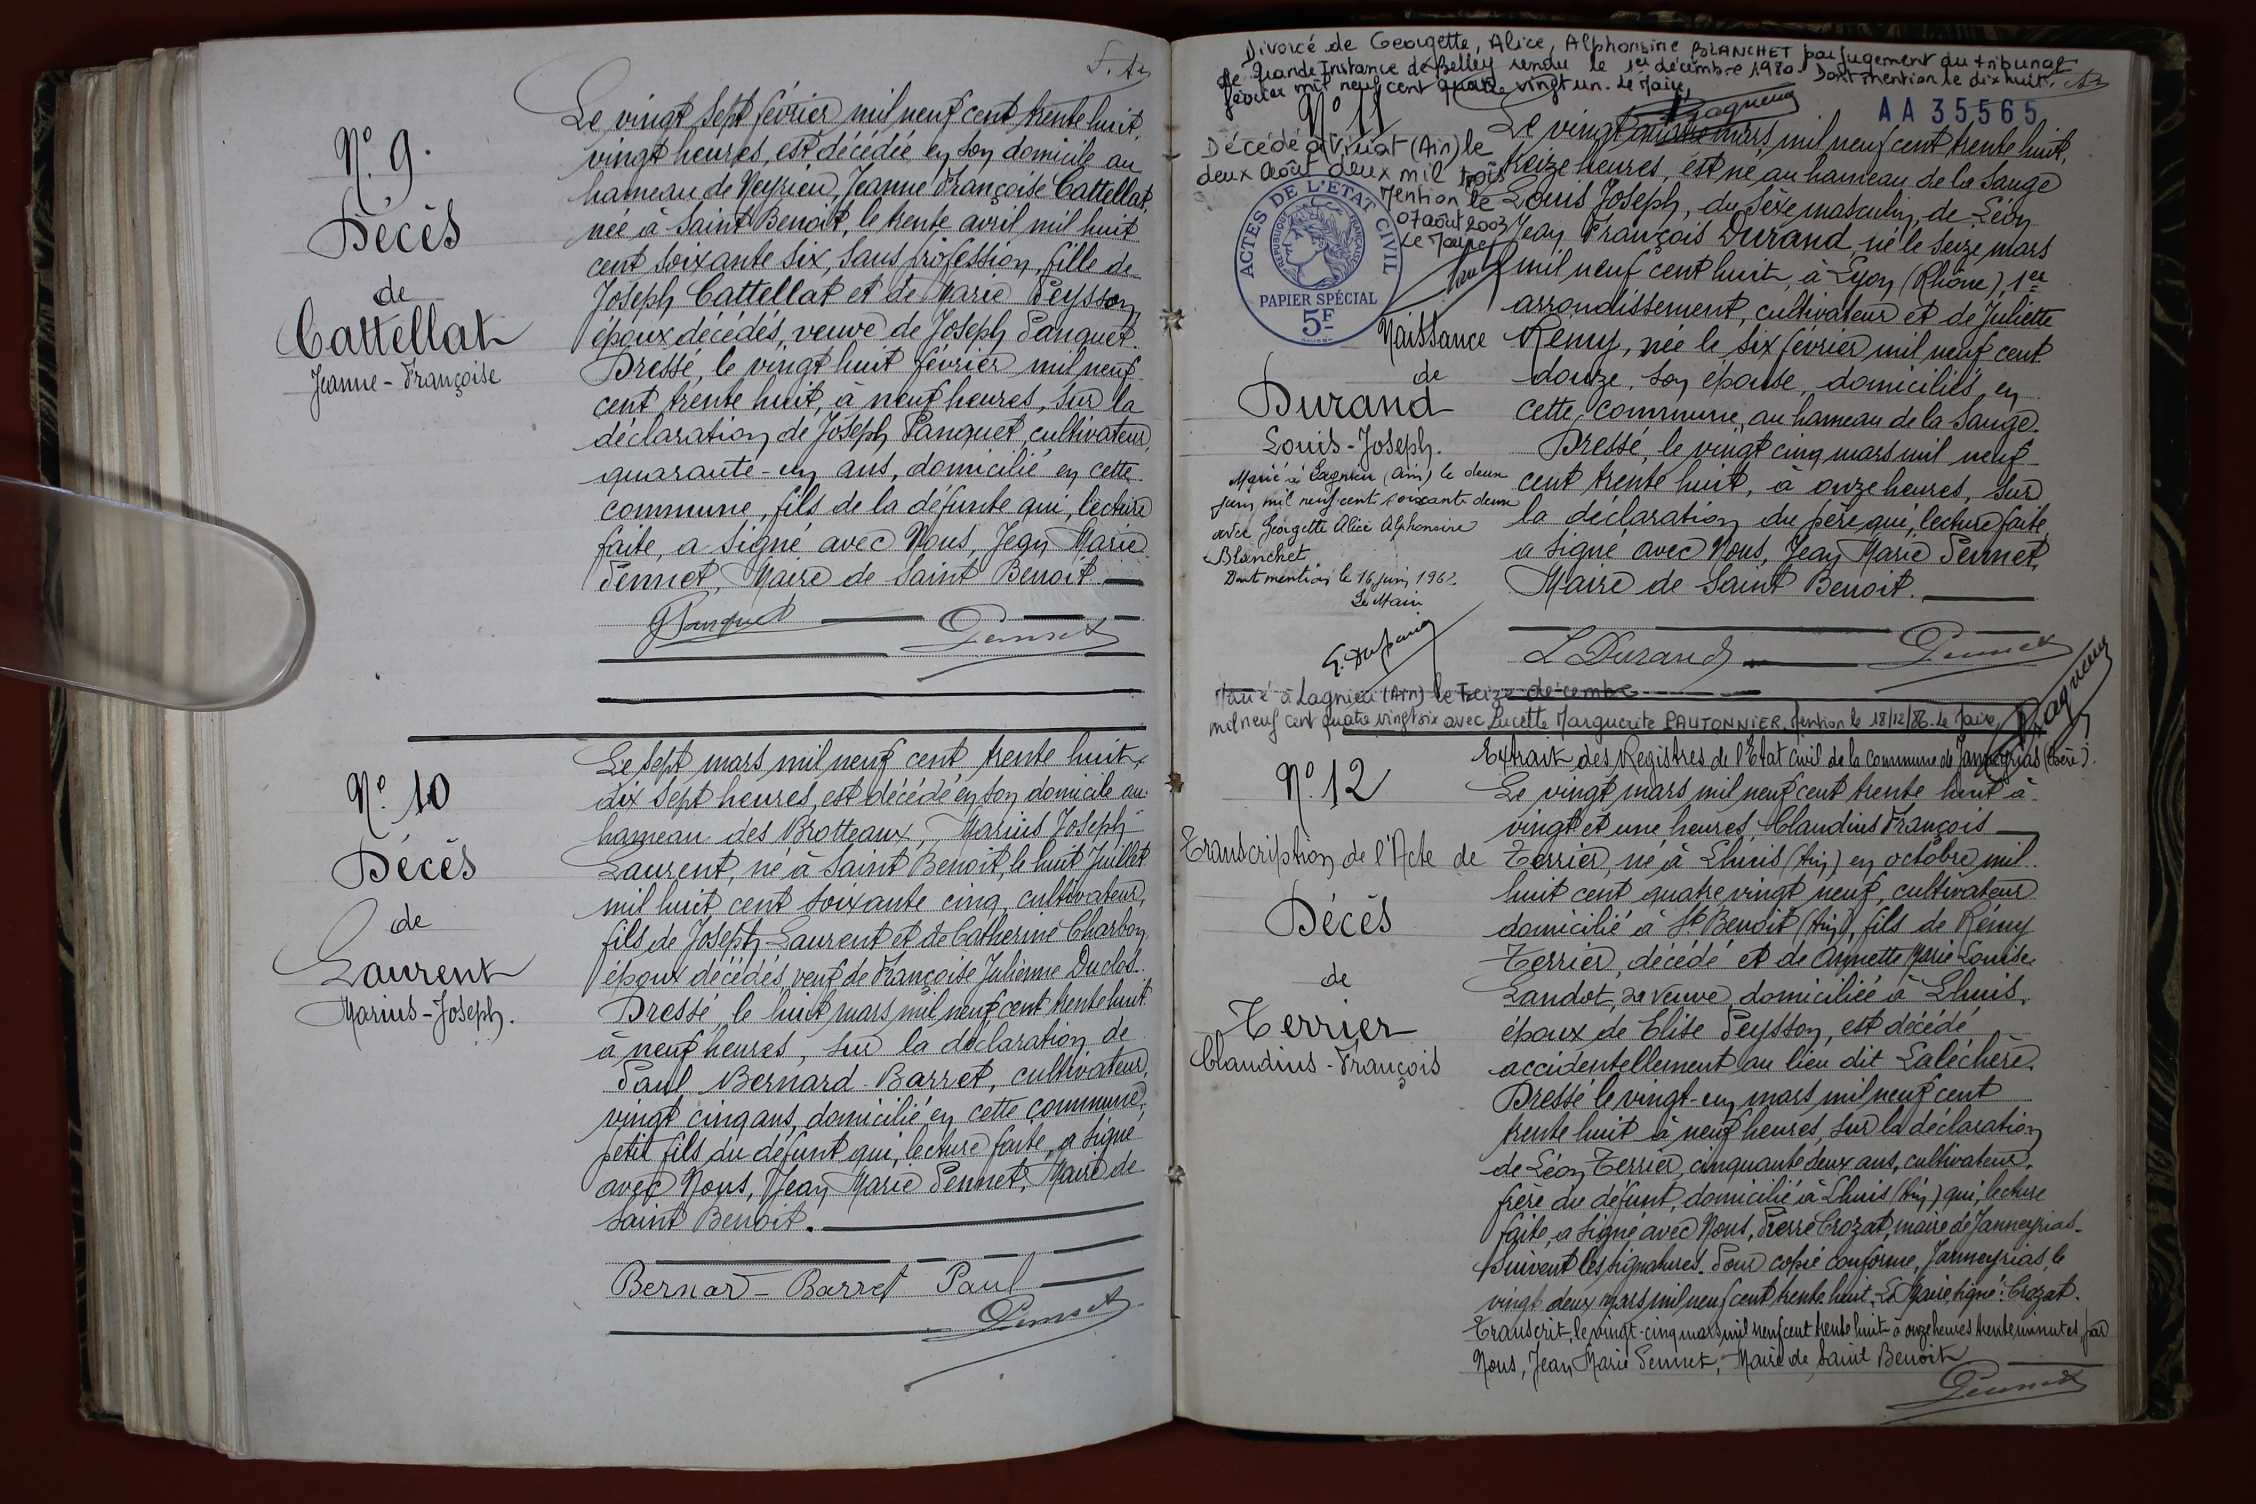 N° 9.
Décès
de
Cattellat
Jeanne-Françoise
Le vingt sept février mil neuf cent trente huit,
vingt heures, est décédée en son domicile au
hameau de Neyrieu, Jeanne Françoise Cattellat,
née à Saint Benoit, le trente avril mil huit
cent soixante six, sans profession, fille de
Joseph Cattellat et de Marie Peysson,
époux décédés, veuve de Joseph Panquet.
Dressé, le vingt huit février mil neuf
cent trente huit, à neuf heures, sur la
déclaration de Joseph Panquet, cultivateur,
quarante-un ans, domicilié en cette
commune, fils de la défunte qui, lecture
faite, a signé avec Nous, Jean Marie
Pennet, Maire de Saint Benoit.
Panquet Pennet
N° 10
Décès
de
Laurent
Marius-Joseph.
Le sept mars mil neuf cent trente huit,
dix sept heures, est décédé en son domicile au
hameau des Brotteaux, Marius Joseph
Laurent, né à Saint Benoit, le huit Juillet
mil huit cent soixante cinq, cultivateur,
fils de Joseph Laurent et de Catherine Charbon,
époux décédés, veuf de Françoise Julienne Duclos.
Dressé, le huit mars mil neuf cent trente huit
à neuf heures, sur la déclaration de
Paul Bernard-Barret, cultivateur,
vingt cinq ans, domicilié en cette commune,
petit fils du défunt qui, lecture faite, a signé
avec Nous, Jean Marie Pennet, Maire de
Saint Benoit.
Bernard-Barret Paul
Pennet
Divorcé de Georgette, Alice, Alphonsine BLANCHET par jugement du tribunal
de Grande Instance de Belley rendu le 1er décembre 1980. Dont mention le dix huit
février mil neuf cent quatre vingt un. Le Maire,
AA 35565
N° 11
Décédé à Viriat (Ain) le
deux août deux mil trois
Mention le
07 août 2003
Le Maire
ACTES DE L'ETAT CIVIL
REPUBLIQUE FRANÇAISE
PAPIER SPÉCIAL
5F
Naissance
de
Durand
Louis-Joseph.
Marié à Lagnieu (Ain) le deux
juin mil neuf cent soixante deux
avec Georgette Alice Alphonsine
Blanchet
Dont mention le 16 juin 1962.
Le Maire
Le vingt quatre mars mil neuf cent trente huit,
treize heures, est né au hameau de la Sauge
Louis Joseph, du sexe masculin, de Léon
Jean François Durand, né le seize mars
mil neuf cent huit, à Lyon (Rhône), 1er
arrondissement, cultivateur et de Juliette
Remy, née le six février mil neuf cent
douze, son épouse, domiciliés en
cette commune, au hameau de la Sauge.
Dressé, le vingt cinq mars mil neuf
cent trente huit, à onze heures, sur
la déclaration du père qui, lecture faite,
a signé avec Nous, Jean Marie Pennet,
Maire de Saint Benoit.
L Durand Pennet
Marié à Lagnieu (Ain) le treize décembre
mil neuf cent quatre vingt six avec Lucette Marguerite PAUTONNIER. Mention le 18/12/86. Le Maire,
N° 12
Transcription de l'Acte de
Décès
de
Terrier
Claudius-François
Extrait des Registres de l'Etat Civil de la commune de Janneyrias (Isère).
Le vingt mars mil neuf cent trente huit à
vingt et une heures, Claudius François
Terrier, né à Lhuis (Ain) en octobre mil
huit cent quatre vingt neuf, cultivateur
domicilié à St Benoit (Ain), fils de Rémy
Terrier, décédé et de Annette Marie Louise
Landot, sa veuve, domiciliée à Lhuis,
époux de Elise Peysson, est décédé
accidentellement au lieu dit Laléchère.
Dressé le vingt-un mars mil neuf cent
trente huit à neuf heures, sur la déclaration
de Léon Terrier, cinquante deux ans, cultivateur,
frère du défunt, domicilié à Lhuis (Ain) qui, lecture
faite, a signé avec Nous, Pierre Crozat, maire de Janneyrias.
Suivent les signatures. Pour copie conforme, Janneyrias le
vingt deux mars mil neuf cent trente huit. Le Maire, signé: Crozat.
Transcrit, le vingt-cinq mars mil neuf cent trente huit à onze heures trente minutes, par
Nous, Jean Marie Pennet, Maire de Saint Benoit
Pennet